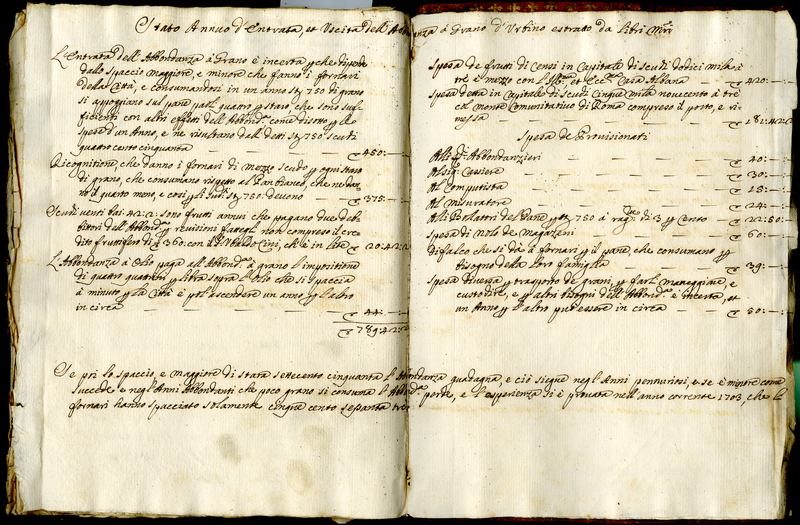 Stato Annuo d'Entrata, et Uscita dell'Abbondanza à Grano d'Urbino estratto da libri
L'Entrata dell'Abbondanza à Grano è incerta, che dipende
dallo spaccio maggiore, e minore che fanno i fornari
della Città, e consumandosi in un anno 750 di grano
si appoggiano sul pane quattro staro che sono suf-
ficienti con altri effetti dell'Abbond.a come disotto
spesa d'un Anno, e ne risultano dell'detti 750 scuti
quattro cento cinquanta — 450:—
Ricognitione, che danno i fornari di mezzo scudo ogni staro
di grano, che consumano rispetto al Pan bianco, che ne dan-
no il quarto meno, e così 750: devono — 375:—
Scudi venti bai: 42:2: sono frutti annui che pagano due debi-
tori dell'Abbond.a revisioni non compreso il cre-
dito fruttifero di 360 con Cini, ch'è in lite 20:42:2
L'Abbondanza à Olio paga all'Abbond.a à grano l'impositione
di quattro quattrini libra sopra l'Olio che si spaccia
à minuto la Città e può ascendere un anno l'altro
in circa — 44:—
789:42:2
Spesa de frutti di Censi in Capitale di scuti dodici mila
trè e mezzo con Casa Albana — 420:—
Spesa detta in Capitale di scuti Cinque mila novecento à trè
col monte Comunitativo di Roma compreso il porto, e ri-
messa — 181:42:2
Spesa de Provisionati
Alli Abbondanzieri — 40:—
Al sig. Cassiere — 30:—
Al Computista — 15:—
Al Misuratore — 24:—
Alli Bollatori del Pane 750 à rag.ne di 3 Cento — 22:50:—
Spesa di Nolo de Magazeni — 60:—
Difalco che si dà à fornari il pane, che consumano
bisogno della loro famiglia — 39:—
Spesa diversa trasporto de grani, farli maneggiare, e
custodire, e altri bisogni dell'Abbond.a è incerta, et
un Anno l'altro può essere in circa — 50:—
Se pri lo spaccio, e maggiore di stara settecento cinquanta l'Abbondanza guadagna, e ciò siegue negl'Anni pennuriosi, e se è minore come
succede e negl'Anni Abbondanti che poco grano si consuma l'Abbond.a perde, e l'esperienza si è provata nell'anno corrente 1703, che li
fornari hanno spacciato solamente cinque cento sessanta tre